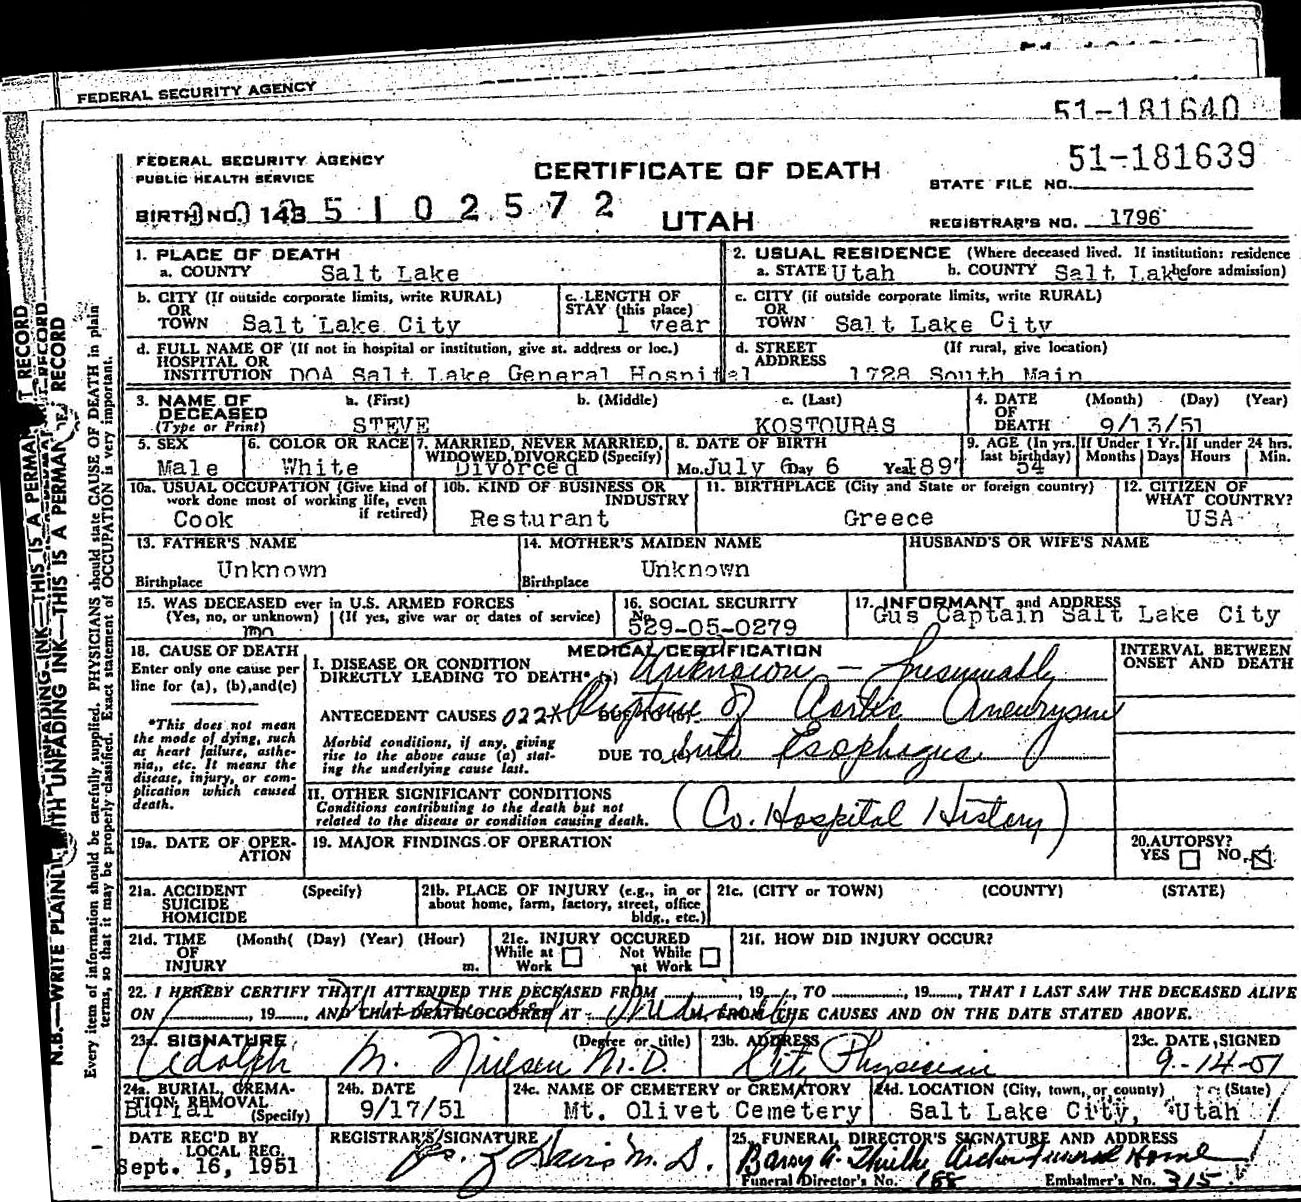 FEDERAL SECURITY AGENCY
51-181640
51-181639
FEDERAL SECURITY AGENCY
PUBLIC HEALTH SERVICE
CERTIFICATE OF DEATH
STATE FILE NO.
BIRTH NO. 143 5 1 0 2 5 7 2
UTAH
REGISTRAR'S NO. 1796
1. PLACE OF DEATH
a. COUNTY Salt Lake
2. USUAL RESIDENCE (Where deceased lived. If institution: residence before admission)
a. STATE Utah b. COUNTY Salt Lake
b. CITY (If outside corporate limits, write RURAL)
OR
TOWN Salt Lake City
c. LENGTH OF
STAY (this place)
1 year
c. CITY (if outside corporate limits, write RURAL)
OR
TOWN Salt Lake City
d. FULL NAME OF (If not in hospital or institution, give st. address or loc.)
HOSPITAL OR
INSTITUTION DOA Salt Lake General Hospital
d. STREET (If rural, give location)
ADDRESS
1728 South Main
3. NAME OF a. (First) b. (Middle) c. (Last)
DECEASED
(Type or Print) STEVE KOSTOURAS
4. DATE (Month) (Day) (Year)
OF
DEATH 9/13/51
5. SEX
Male
6. COLOR OR RACE
White
7. MARRIED, NEVER MARRIED,
WIDOWED, DIVORCED (Specify)
Divorced
8. DATE OF BIRTH
Mo. July 6 Day 6 Year 189
9. AGE (In yrs. last birthday)
54
If Under 1 Yr.
Months Days
If under 24 hrs.
Hours Min.
10a. USUAL OCCUPATION (Give kind of
work done most of working life, even
if retired)
Cook
10b. KIND OF BUSINESS OR
INDUSTRY
Resturant
11. BIRTHPLACE (City and State or foreign country)
Greece
12. CITIZEN OF
WHAT COUNTRY?
USA
13. FATHER'S NAME
Unknown
Birthplace
14. MOTHER'S MAIDEN NAME
Unknown
Birthplace
HUSBAND'S OR WIFE'S NAME
15. WAS DECEASED ever in U.S. ARMED FORCES
(Yes, no, or unknown) (If yes, give war or dates of service)
16. SOCIAL SECURITY
No.
529-05-0279
17. INFORMANT and ADDRESS
Gus Captain Salt Lake City
18. CAUSE OF DEATH
Enter only one cause per
line for (a), (b), and (c)
*This does not mean
the mode of dying, such
as heart failure, asthe-
nia,, etc. It means the
disease, injury, or com-
plication which caused
death.
MEDICAL CERTIFICATION
I. DISEASE OR CONDITION
DIRECTLY LEADING TO DEATH* (a) Unknown - Presumably
ANTECEDENT CAUSES 022X DUE TO (b) Rupture of Aortic Aneurysm
Morbid conditions, if any, giving
rise to the above cause (a) stat-
ing the underlying cause last.
DUE TO into Esophagus
II. OTHER SIGNIFICANT CONDITIONS
Conditions contributing to the death but not
related to the disease or condition causing death.
(Co. Hospital History)
INTERVAL BETWEEN
ONSET AND DEATH
19a. DATE OF OPER-
ATION
19. MAJOR FINDINGS OF OPERATION
20. AUTOPSY?
YES NO
21a. ACCIDENT (Specify)
SUICIDE
HOMICIDE
21b. PLACE OF INJURY (e.g., in or
about home, farm, factory, street, office
bldg., etc.)
21c. (CITY or TOWN) (COUNTY) (STATE)
21d. TIME (Month( (Day) (Year) (Hour)
OF
INJURY m.
21e. INJURY OCCURED
While at Work Not While at Work
21f. HOW DID INJURY OCCUR?
22. I HEREBY CERTIFY THAT I ATTENDED THE DECEASED FROM , 19 , TO , 19 , THAT I LAST SAW THE DECEASED ALIVE
ON , 19 , AND THAT DEATH OCCURED AT FROM THE CAUSES AND ON THE DATE STATED ABOVE.
23a. SIGNATURE (Degree or title)
Adolph M. Nielsen M.D.
23b. ADDRESS
City Physician
23c. DATE SIGNED
9-14-51
24a. BURIAL, CREMA-
TION, REMOVAL
(Specify)
Burial
24b. DATE
9/17/51
24c. NAME OF CEMETERY or CREMATORY
Mt. Olivet Cemetery
24d. LOCATION (City, town, or county) (State)
Salt Lake City, Utah
DATE REC'D BY
LOCAL REG.
Sept. 16, 1951
REGISTRAR'S SIGNATURE
25. FUNERAL DIRECTOR'S SIGNATURE AND ADDRESS
Funeral Home
Funeral Director's No.
Embalmer's No. 315
N.B.—WRITE PLAINLY WITH UNFADING INK—THIS IS A PERMANENT RECORD
Every item of information should be carefully supplied. PHYSICIANS should state CAUSE OF DEATH in plain
terms, so that it may be properly classified. Exact statement of OCCUPATION is very important.